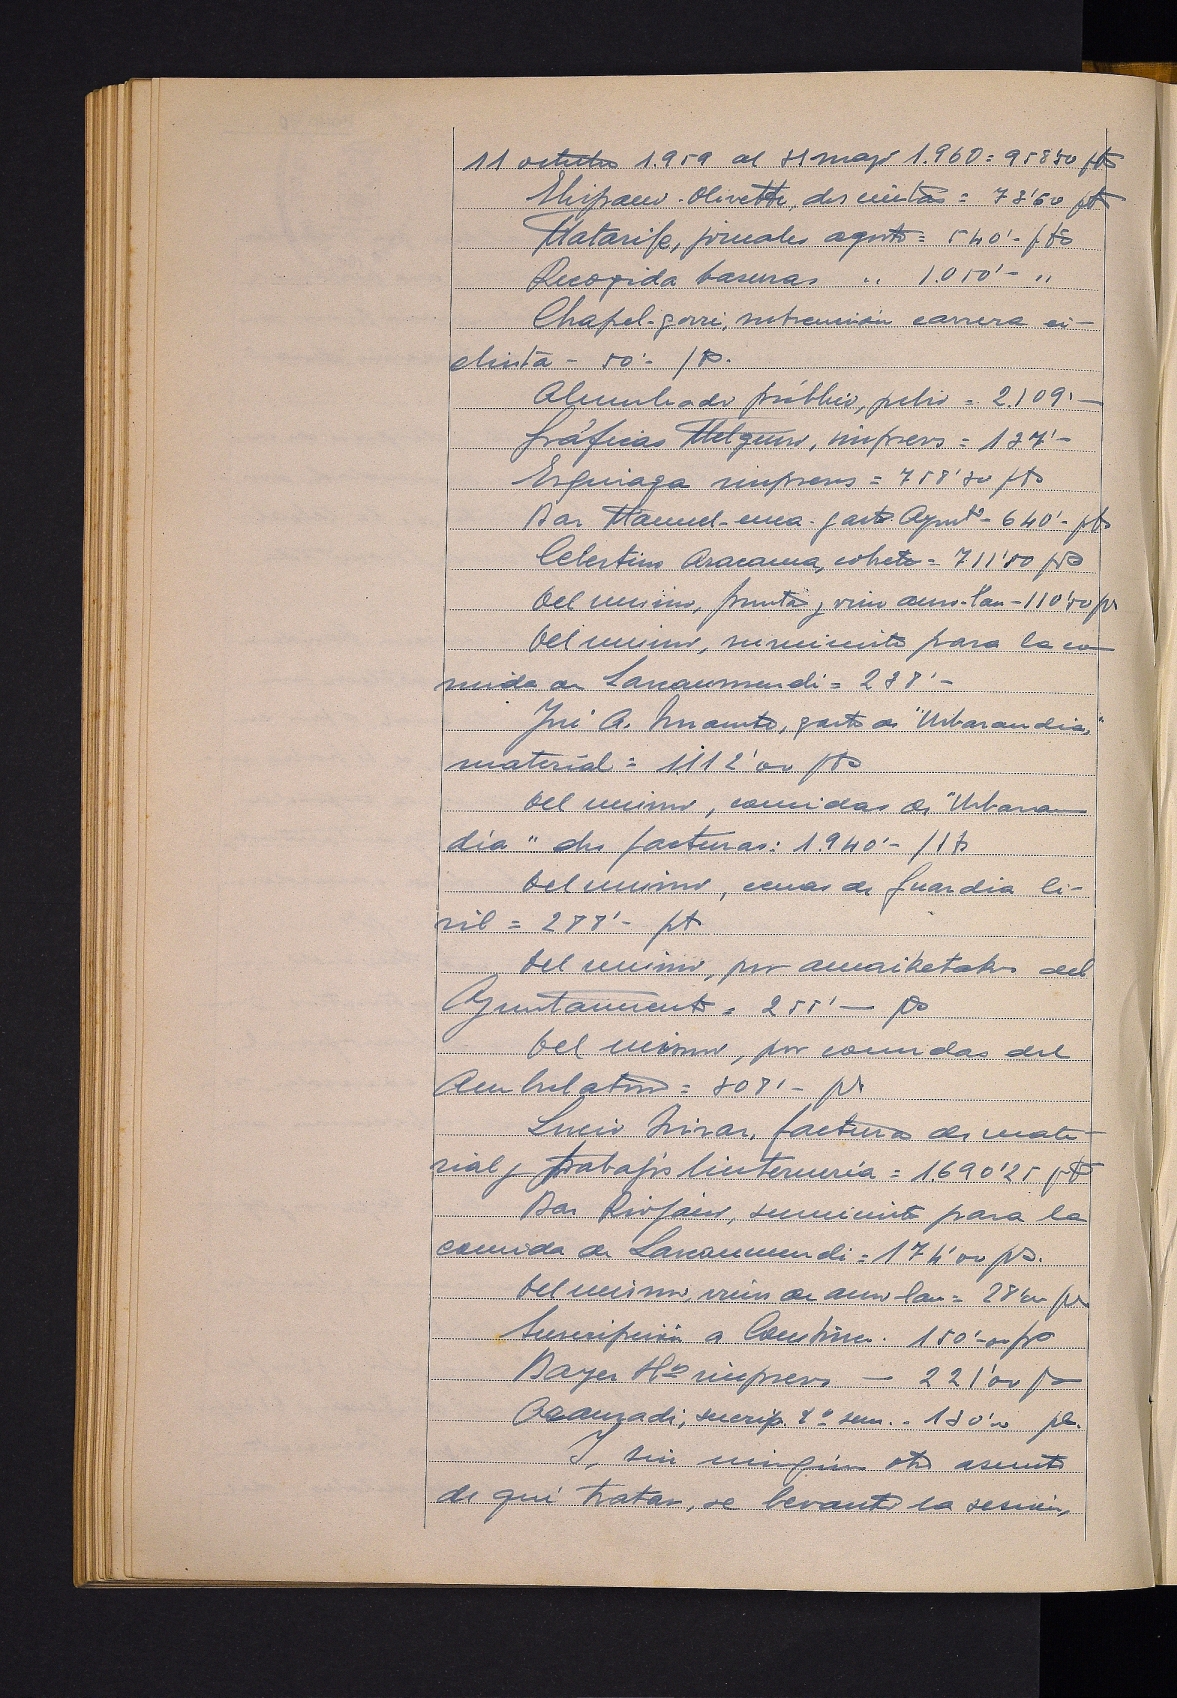 11 octubre 1.959 al 31 mayo 1.960 = 958'50 pts
Hispano-Olivetti, dos cintas = 73'60 pts
Matarife, jornales agosto = 540'- pts
Recogida basuras " 1.050'- "
Chapel-gorri, subvención carrera ci-
clista - 50'- pts.
Alumbrado público, julio = 2.109'-
Gráficas Helguero, impresos = 137'-
Erquiaga impresos = 758'30 pts
Bar Manuel gasto Aynto - 640'- pts
Celestino Aracama, cohetes = 711'50 pts
Del mismo, fruta y vino auzo-lan - 110'50 pts
Del mismo, suministro para la co-
mida de Larraunmendi = 238'-
José A. gasto de "Urbarandia,"
material = 1.112'00 pts
Del mismo, comidas de "Urbaran
dia" dos facturas: 1.940'- pts
Del mismo, cenas de Guardia Ci-
vil = 288'- pts
Del mismo, por amaiketakos del
Ayuntamiento = 255'— pts
Del mismo, por comidas del
Ambulatorio = 308'- pts
Lucio facturas de mate-
rial y trabajos linternería = 1.690'25 pts
Bar Riojano, suministro para la
comida de Larraunmendi = 174'00 pts.
Del mismo vino de auzo lan = 28'00 pts
Suscripción a 150'00 pts
Bayer Hº impresos — 221'00 pts
Aranzadi, suscrip. 2º sem. - 130'00 pts.
Y, sin ningún otro asunto
de qué tratar, se levantó la sesión,